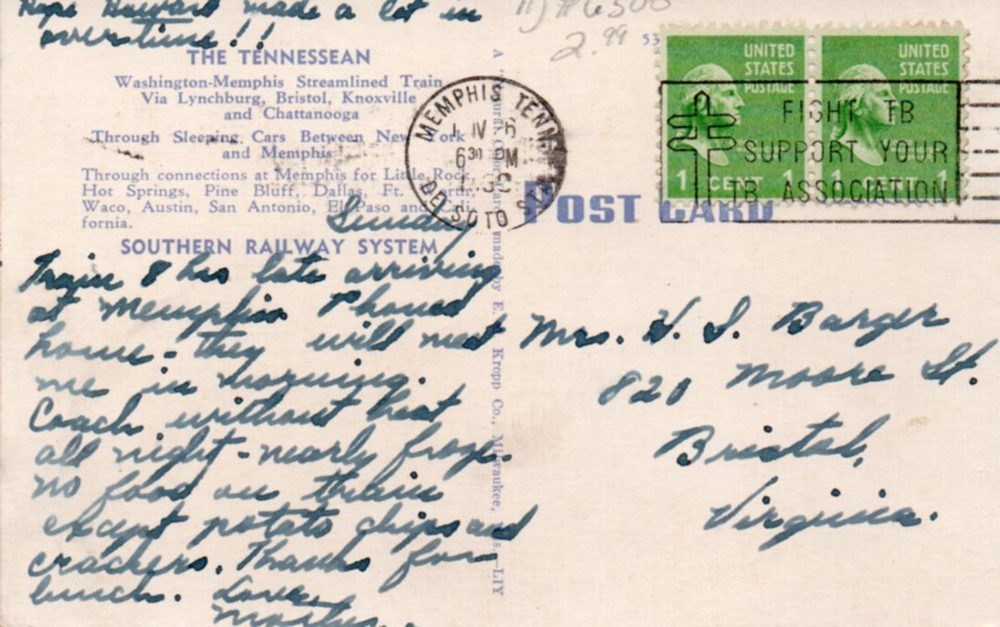 Hope Howard made a lot in
overtime!!
THE TENNESSEAN
Washington-Memphis Streamlined Train
Via Lynchburg, Bristol, Knoxville
and Chattanooga
Through Sleeping Cars Between New York
and Memphis
Through connections at Memphis for Little Rock,
Hot Springs, Pine Bluff, Dallas, Ft. Worth,
Waco, Austin, San Antonio, El Paso and Cali-
fornia.
SOUTHERN RAILWAY SYSTEM
Sunday
Train 8 hrs late arriving
at Memphis. Phoned
home - they will meet
me in morning.
Coach without heat
all night - nearly froze.
No food on train
except potato chips and
crackers. Thanks for
lunch. Love,
made by E. C. Kropp Co., Milwaukee, Wis.—LIY
2.99
53
MEMPHIS TENN.
6 30 PM
DE SOTO
UNITED
STATES
POSTAGE
1 CENT 1
UNITED
STATES
POSTAGE
1 CENT 1
FIGHT TB
SUPPORT YOUR
TB ASSOCIATION
POST CARD
Mrs. H. S. Barger
820 Moore St.
Bristol,
Virginia.